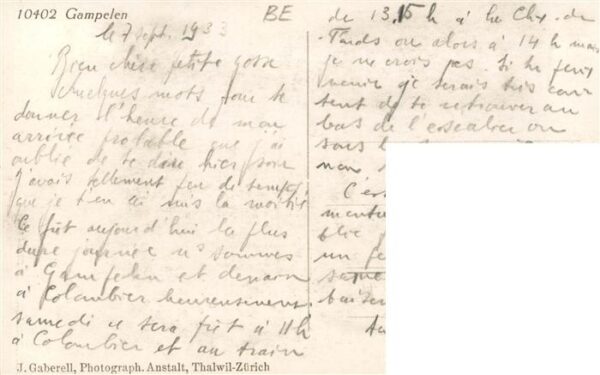 10402 Gampelen
BE
le 7 sept. 1933
Bien chère petite gosse
Quelques mots pour te
donner l'heure de mon
arrivée probable que j'ai
oublié de te dire hier soir
j'avais tellement peu de temps
que je t'en ai mis la moitié
Ce fût aujourd'hui la plus
dure journée ns sommes
à Gampelen et demain
à Colombier heureusement.
samedi ce sera fût à 11h
à Colombier et au train
J. Gaberell, Photograph. Anstalt, Thalwil-Zürich
de 13.15 h à la Chx-de-
Fonds ou alors à 14 h mais
je ne crois pas. Si tu peux
venir je serais très con-
tent de te retrouver au
bas de l'escalier ou
sous
C'es
un
baiser